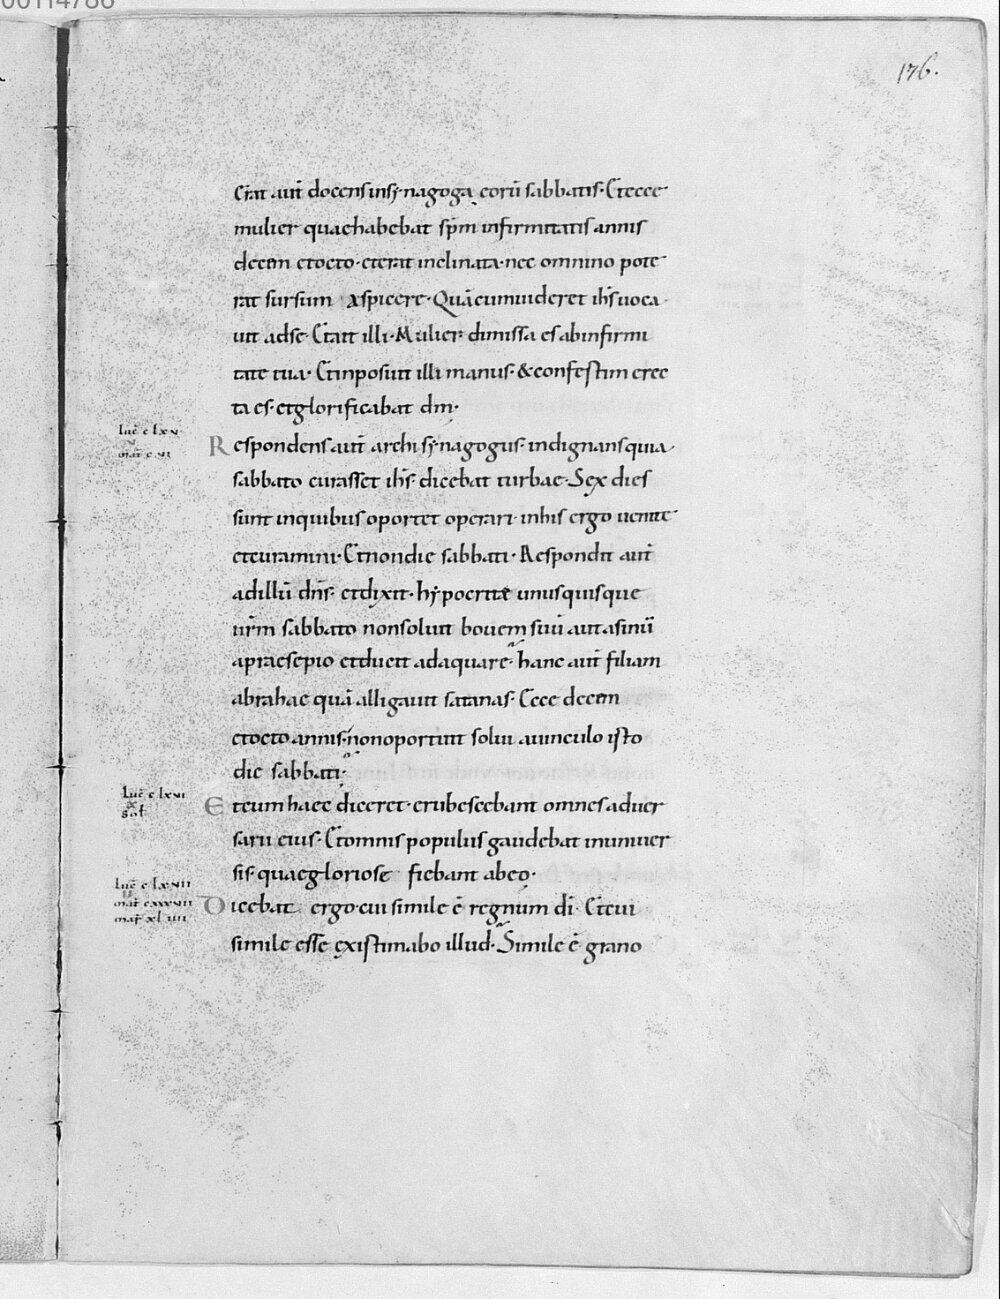 00114786
176.
Erat aut̄ docens in synagoga eorū sabbatis· Et ecce
mulier quae habebat sp̄m infirmitatis annis
decem et octo· et erat inclinata· nec omnino pote
rat sursum aspicere· Quā cum uideret ih̄s uoca
uit ad se· Et ait illi· Mulier dimissa es ab infirmi
tate tua· Et inposuit illi manus· & confestim erec
ta es et glorificabat dm̄·
luc̄ c lxv
Respondens aut̄ archisynagogus indignans quia
sabbato curasset ih̄s dicebat turbae· Sex dies
sunt in quibus oportet operari· in his ergo uenite
et curamini· Et non die sabbati· Respondit aut̄
ad illū dn̄s· et dixit· hypocritę unusquisque
ur̄m sabbato non soluit bouem suū aut asinū
a praesepio et ducit adaquare· hanc aut̄ filiam
abrahae quā alligauit satanas· Ecce decem
et octo annis· non oportuit solui a uinculo isto
die sabbati·
luc̄ c lxvi
Et cum haec diceret· erubescebant omnes aduer
sarii eius· Et omnis populus gaudebat in uniuer
sis· quae gloriose fiebant ab eo·
luc̄ c lxvii
mat̄ cxxxvii
mar̄ xliiii
Dicebat ergo· cui simile ē regnum dī· Et cui
simile esse existimabo illud· Simile ē grano